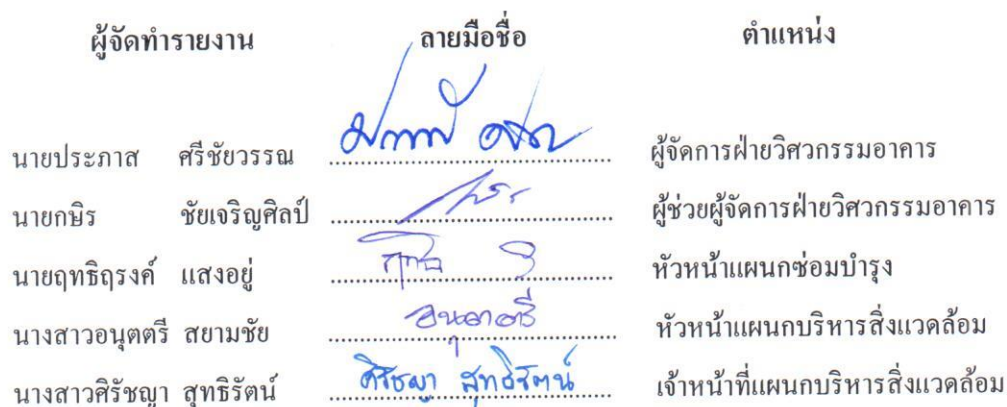 ผู้จัดทำรายงาน ลายมือชื่อ ตำแหน่ง
นายประภาส ศรีชัยวรรณ ผู้จัดการฝ่ายวิศวกรรมอาคาร
นายกษิร ชัยเจริญศิลป์ ผู้ช่วยผู้จัดการฝ่ายวิศวกรรมอาคาร
นายฤทธิฤรงค์ แสงอยู่ หัวหน้าแผนกซ่อมบำรุง
นางสาวอนุตตรี สยามชัย อนุตตรี หัวหน้าแผนกบริหารสิ่งแวดล้อม
นางสาวศิรัชญา สุทธิรัตน์ ศิรัชญา สุทธิรัตน์ เจ้าหน้าที่แผนกบริหารสิ่งแวดล้อม